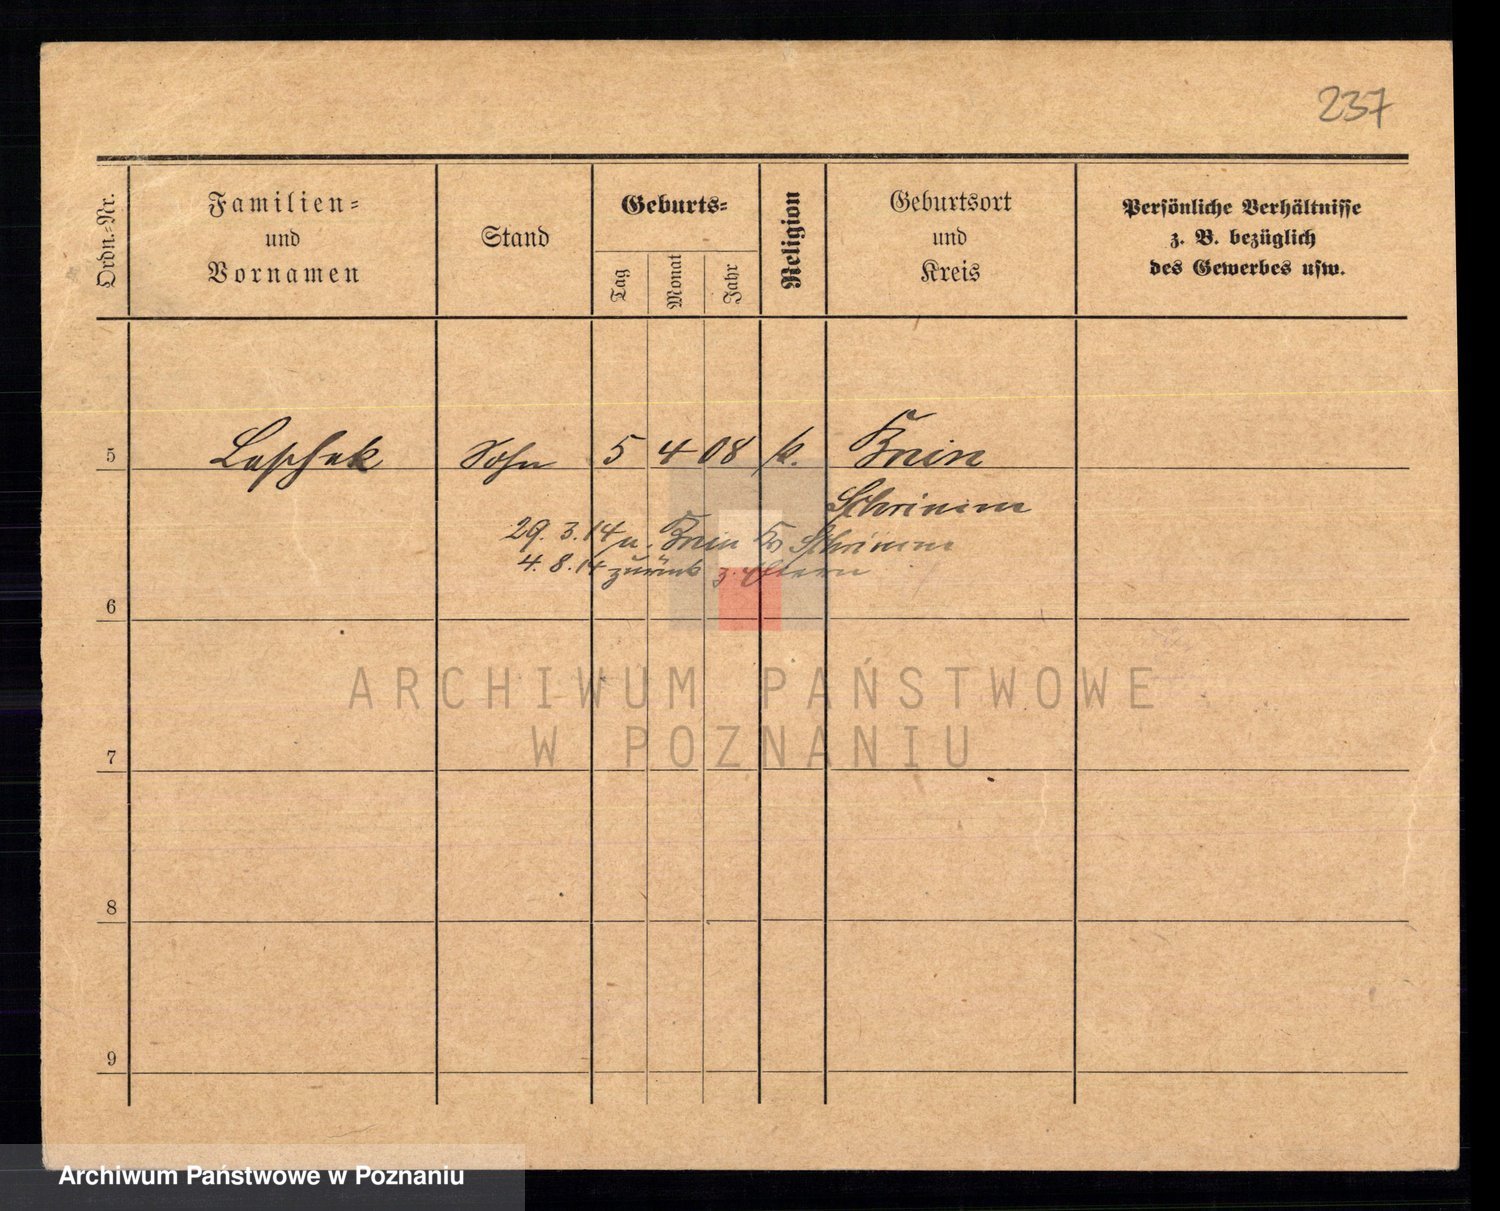 237
Ordn.-Nr.
Familien-
und
Vornamen
Stand
Geburts-
Tag
Monat
Jahr
Religion
Geburtsort
und
Kreis
Persönliche Verhältnisse
z. B. bezüglich
des Gewerbes usw.
5 Leschek Sohn 5 4 08 k. Bnin
Schrimm
29. 3. 14 n. Bnin Kr Schrimm
4. 8. 14 zurück z. Eltern
6
ARCHIWUM PAŃSTWOWE
W POZNANIU
7
8
9
Archiwum Państwowe w Poznaniu